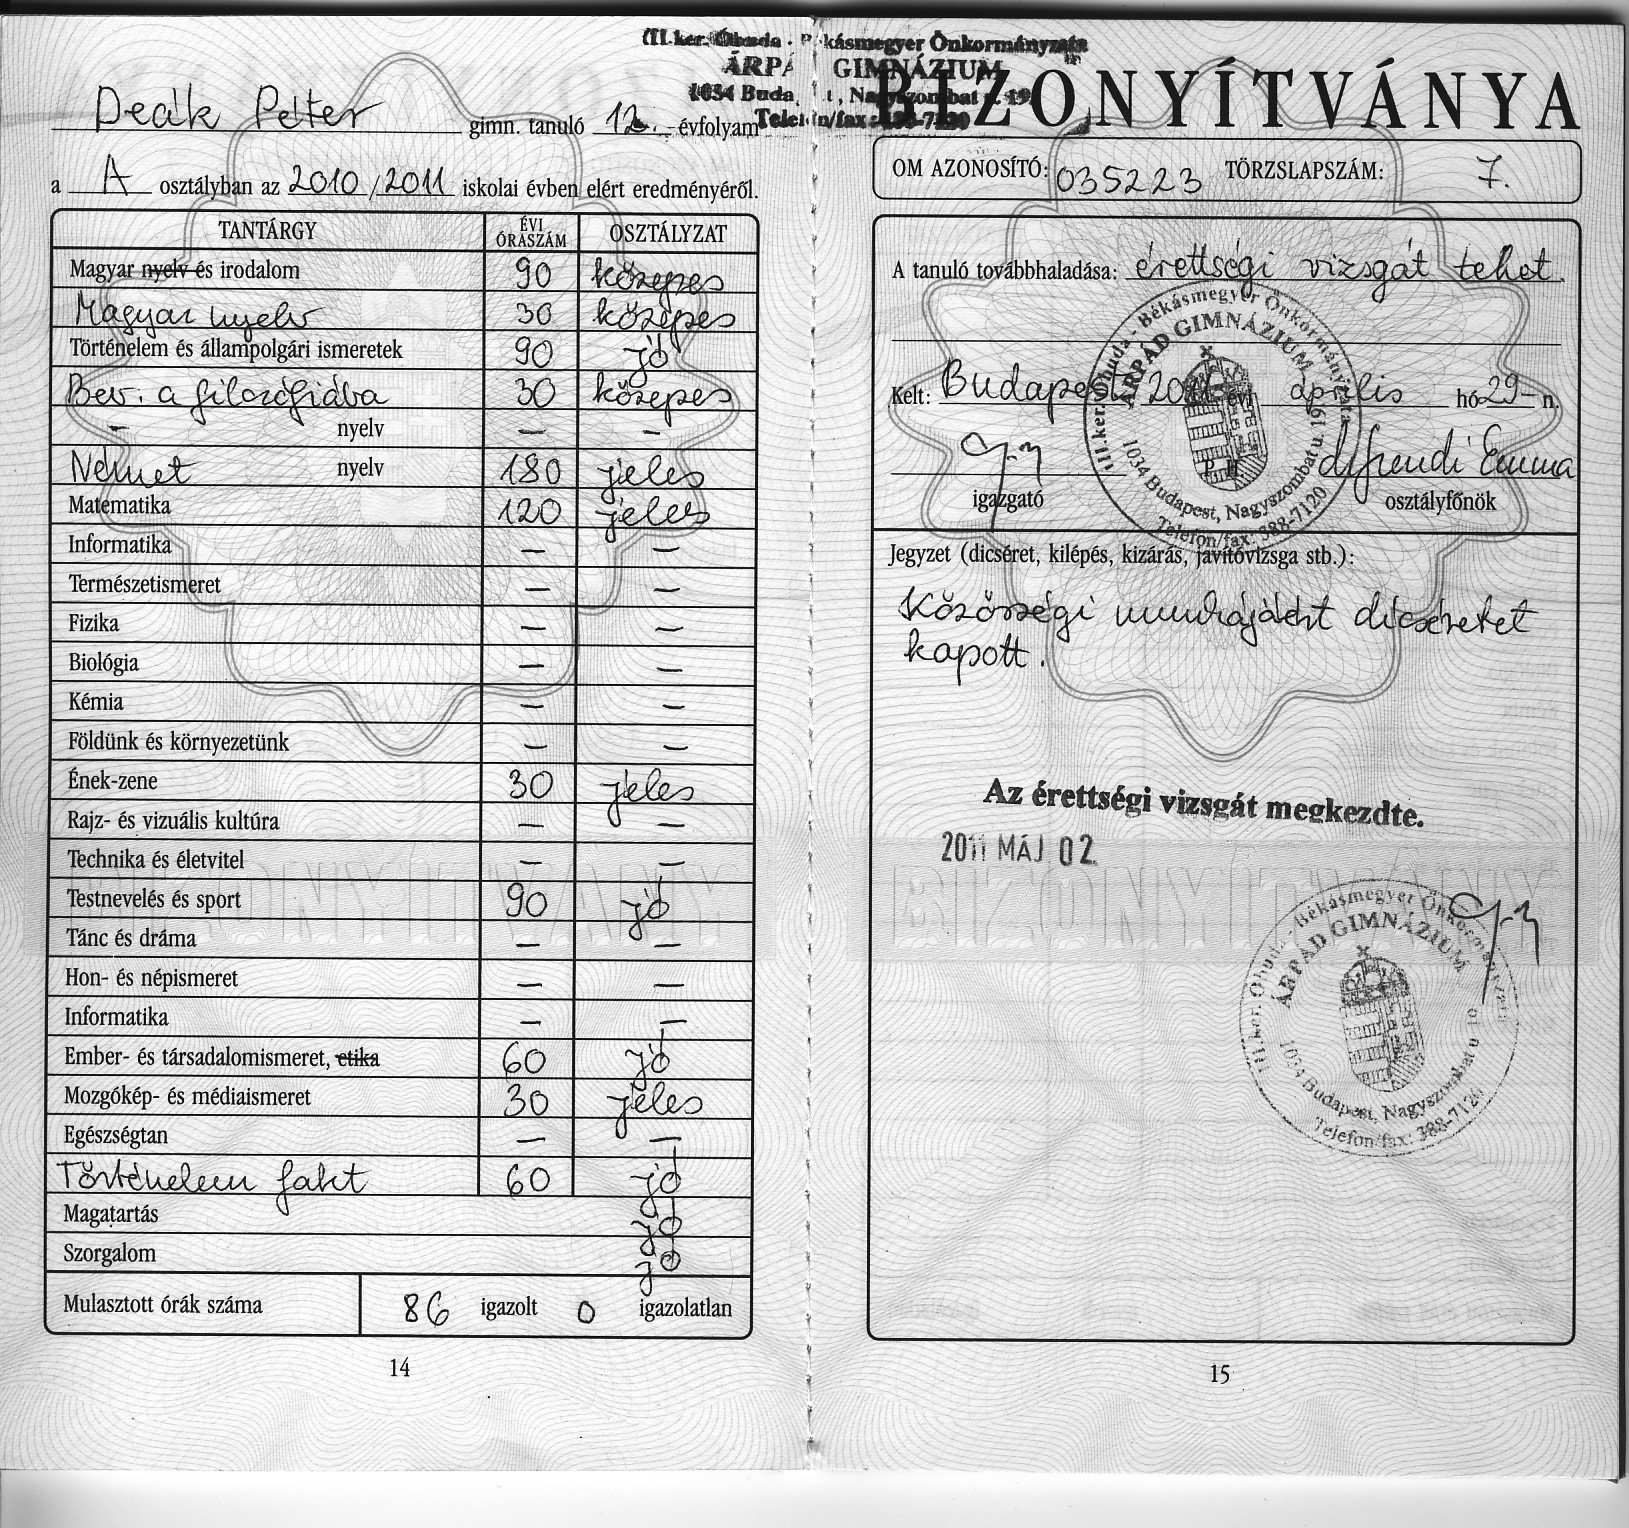 III. ker. Óbuda - Békásmegyer Önkormányzata
ÁRPÁD GIMNÁZIUM
1034 Budapest, Nagyszombat u. 19.
Telefon/fax: 388-7120
Deák Péter gimn. tanuló 12. évfolyam
a A osztályban az 2010/2011 iskolai évben elért eredményéről.
TANTÁRGY ÉVI ÓRASZÁM OSZTÁLYZAT
Magyar nyelv és irodalom 90 közepes
Magyar nyelv 30 közepes
Történelem és állampolgári ismeretek 90 jó
Bev. a filozófiába 30 közepes
– nyelv — –
Német nyelv 180 jeles
Matematika 120 jeles
Informatika — —
Természetismeret — —
Fizika — —
Biológia — —
Kémia — —
Földünk és környezetünk — —
Ének-zene 30 jeles
Rajz- és vizuális kultúra — —
Technika és életvitel — —
Testnevelés és sport 90 jó
Tánc és dráma — —
Hon- és népismeret — —
Informatika — —
Ember- és társadalomismeret, etika 60 jó
Mozgókép- és médiaismeret 30 jeles
Egészségtan — —
Történelem fakt 60 jó
Magatartás jó
Szorgalom jó
Mulasztott órák száma 86 igazolt 0 igazolatlan
14
BIZONYÍTVÁNYA
OM AZONOSÍTÓ: 035223 TÖRZSLAPSZÁM: 7.
A tanuló továbbhaladása: érettségi vizsgát tehet.
Kelt: Budapest 2011 évi április hó 29-n.
P. H.
igazgató osztályfőnök
III. ker. Óbuda - Békásmegyer Önkormányzata
ÁRPÁD GIMNÁZIUM
1034 Budapest, Nagyszombat u. 19.
Telefon/fax: 388-7120
Jegyzet (dicséret, kilépés, kizárás, javítóvizsga stb.):
Közösségi munkájáért dicséretet
kapott.
Az érettségi vizsgát megkezdte.
2011 MÁJ 02.
III. ker. Óbuda - Békásmegyer Önkormányzata
ÁRPÁD GIMNÁZIUM
1034 Budapest, Nagyszombat u. 19.
Telefon/fax: 388-7120
BIZONYÍTVÁNY
15